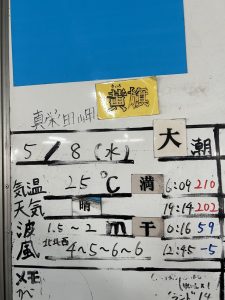 黄旗
真栄田岬
5/8(水) 大潮
気温 25℃ 満 6:09 210
天気 晴 19:14 202
波 1.5~2m 干 0:16 59
風 北北西 4~5~6~6 12:45 -5
メモ